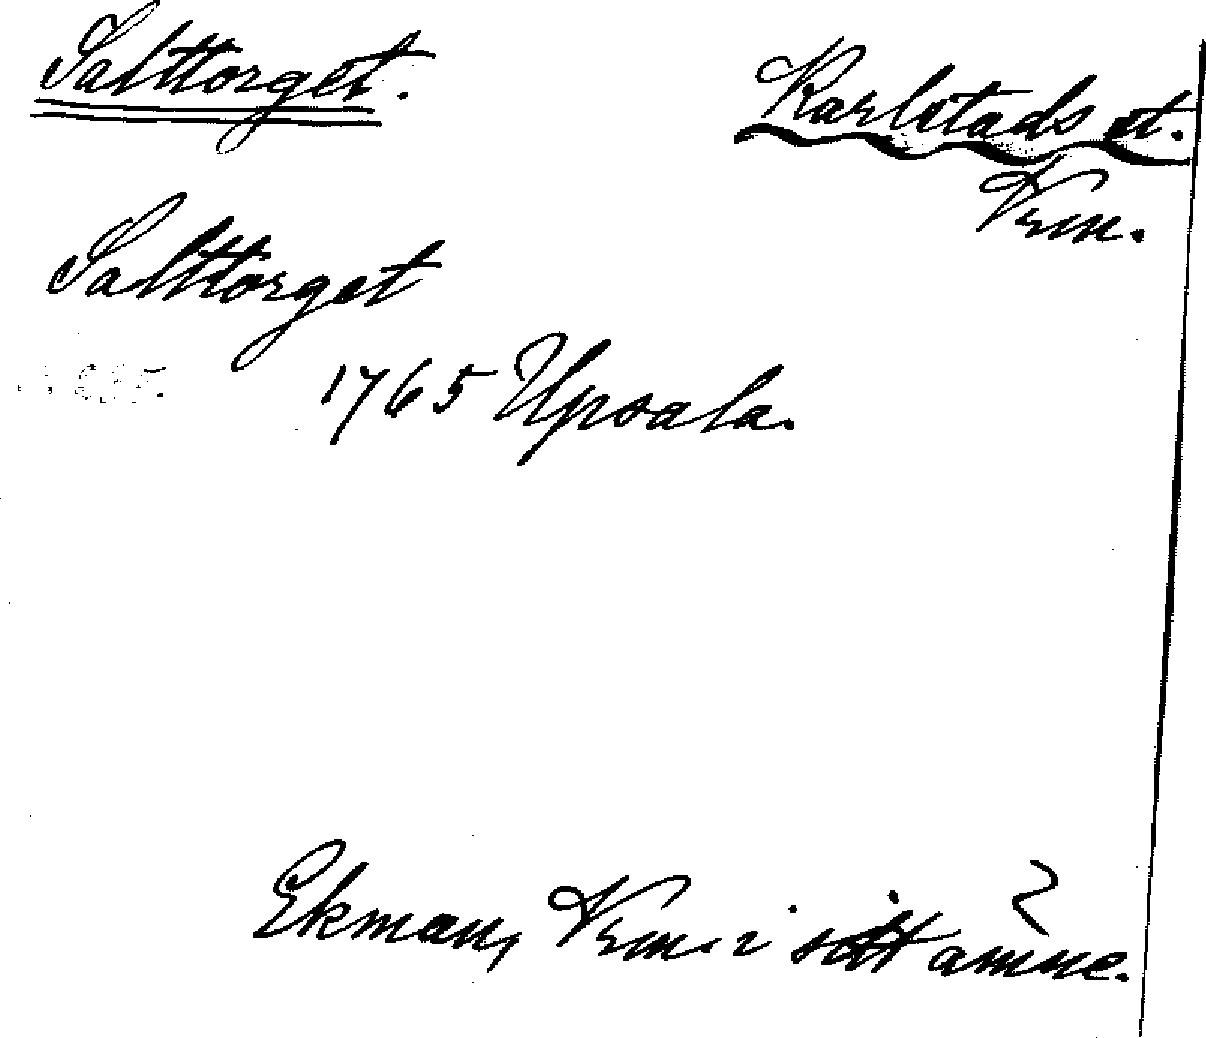 Salttorget.
Karlstads st.
Vrm.
Salttorget
1765 Upsala.
Ekman, Vrm. i sitt ämne.